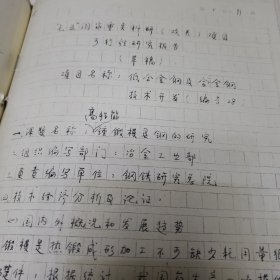 "七五"国家重点科研(攻关)项目
可行性研究报告
(草稿)
项目名称:低合金钢及合金钢
技术开发(编号28
高性能
一、课题名称 锤锻模具钢的研究
二、组织编写部门:冶金工业部
三、负责编写单位:钢铁研究总院
四、技术经济分析及论证。
(一)国内外概况和发展趋势
锻模是热锻成形加工不可缺少耗用量